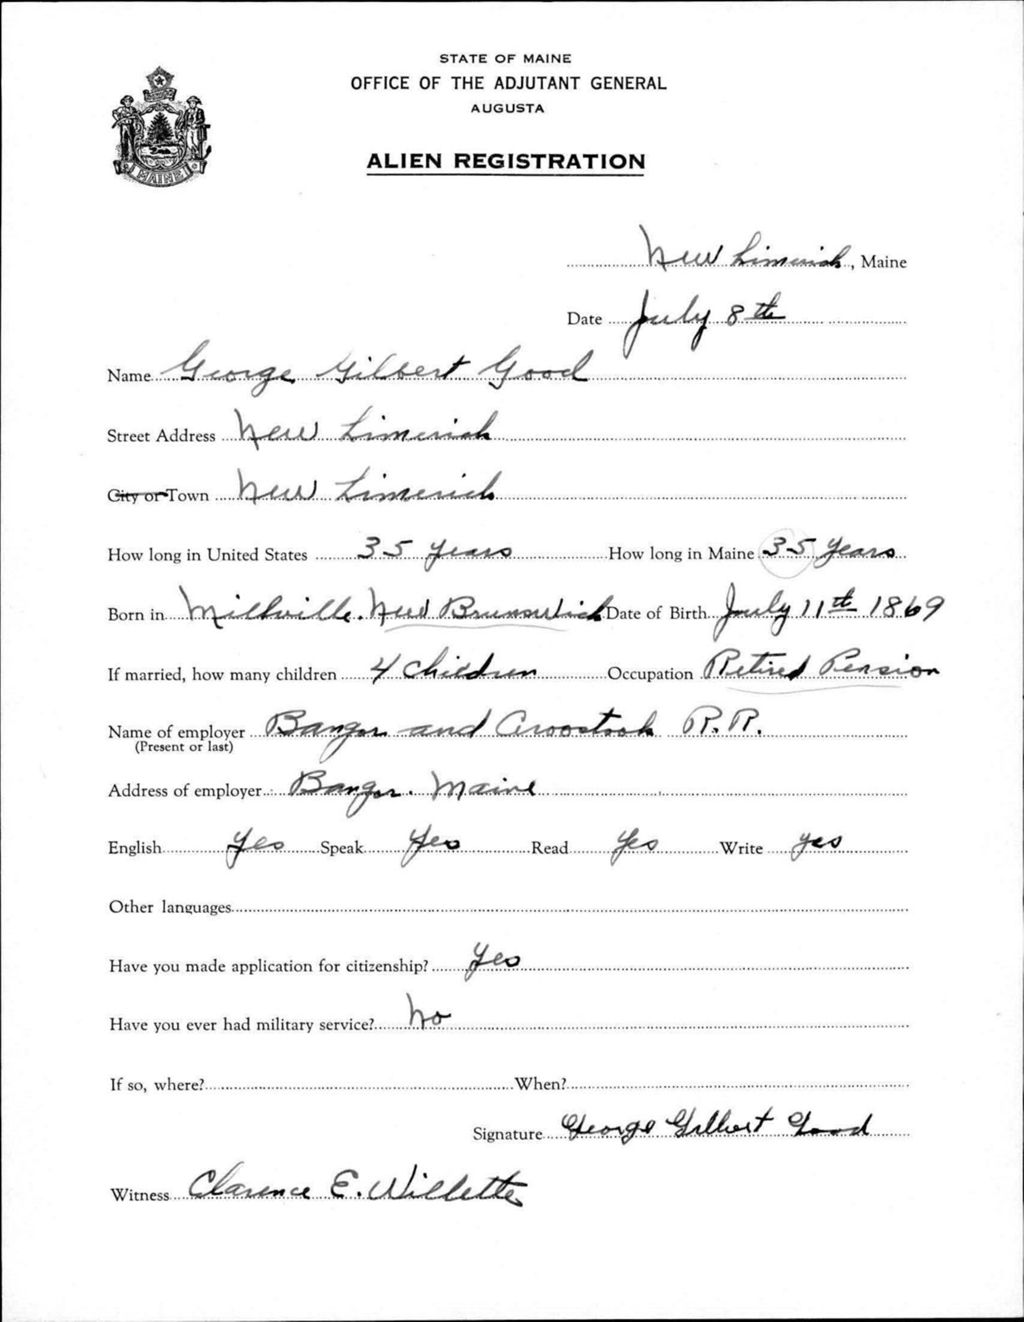 STATE OF MAINE
OFFICE OF THE ADJUTANT GENERAL
AUGUSTA
ALIEN REGISTRATION
MAINE
New Limerick, Maine
Date July 8th
Name George Gilbert Good
Street Address New Limerick
City or Town New Limerick
How long in United States 35 years How long in Maine 35 years
Born in Millville. New Brunswick Date of Birth July 11th 1869
If married, how many children 4 Children Occupation Retired Pension
Name of employer Bangor and Aroostook R.R.
(Present or last)
Address of employer Bangor. Maine
English Yes Speak Yes Read Yes Write yes
Other languages
Have you made application for citizenship? Yes
Have you ever had military service? No
If so, where? When?
Signature George Gilbert Good
Witness Clarence E. Willette